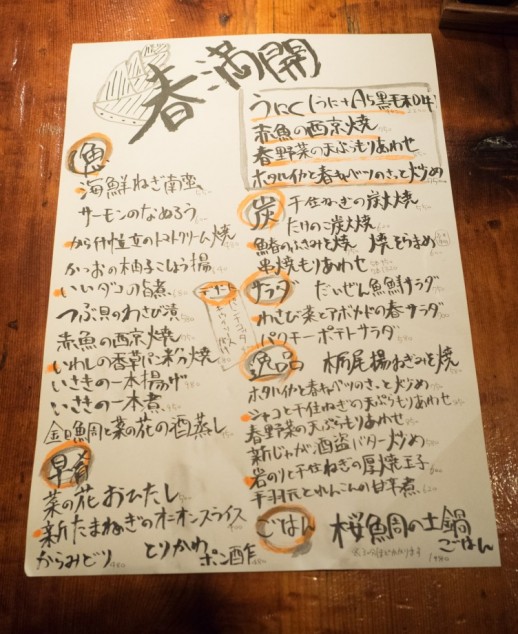 春満開
うにく(うに+A5黒毛和牛)
赤魚の西京焼
春野菜の天ぷらもりあわせ
ホタルイカと春キャベツのさっと炒め
魚
海鮮ねぎ南蛮
サーモンのなめろう
から付帆立のトマトクリーム焼
かつおの柚子こしょう揚
いいダコの旨煮
つぶ貝のわさび漬
赤魚の西京焼
いわしの香草パン粉焼
いさきの一本揚げ
いさきの一本煮
金目鯛と菜の花の酒蒸し
早肴
菜の花おひたし
新たまねぎのオニオンスライス
からみどり
とりかわポン酢
炭
千住ねぎの炭火焼
たけのこ炭火焼
焼そらまめ
串焼もりあわせ
サラダ
だいぜん魚鮮サラダ
わさび菜とアボカドの春サラダ
パクチーポテトサラダ
逸品
栃尾揚ねぎみそ焼
ホタルイカと春キャベツのさっと炒め
ジャコと千住ねぎの天ぷらもりあわせ
春野菜の天ぷらもりあわせ
新じゃが酒盗バター炒め
岩のりと千住ねぎの厚焼玉子
手羽元とれんこんの甘辛煮
ごはん
桜鯛の土鍋ごはん